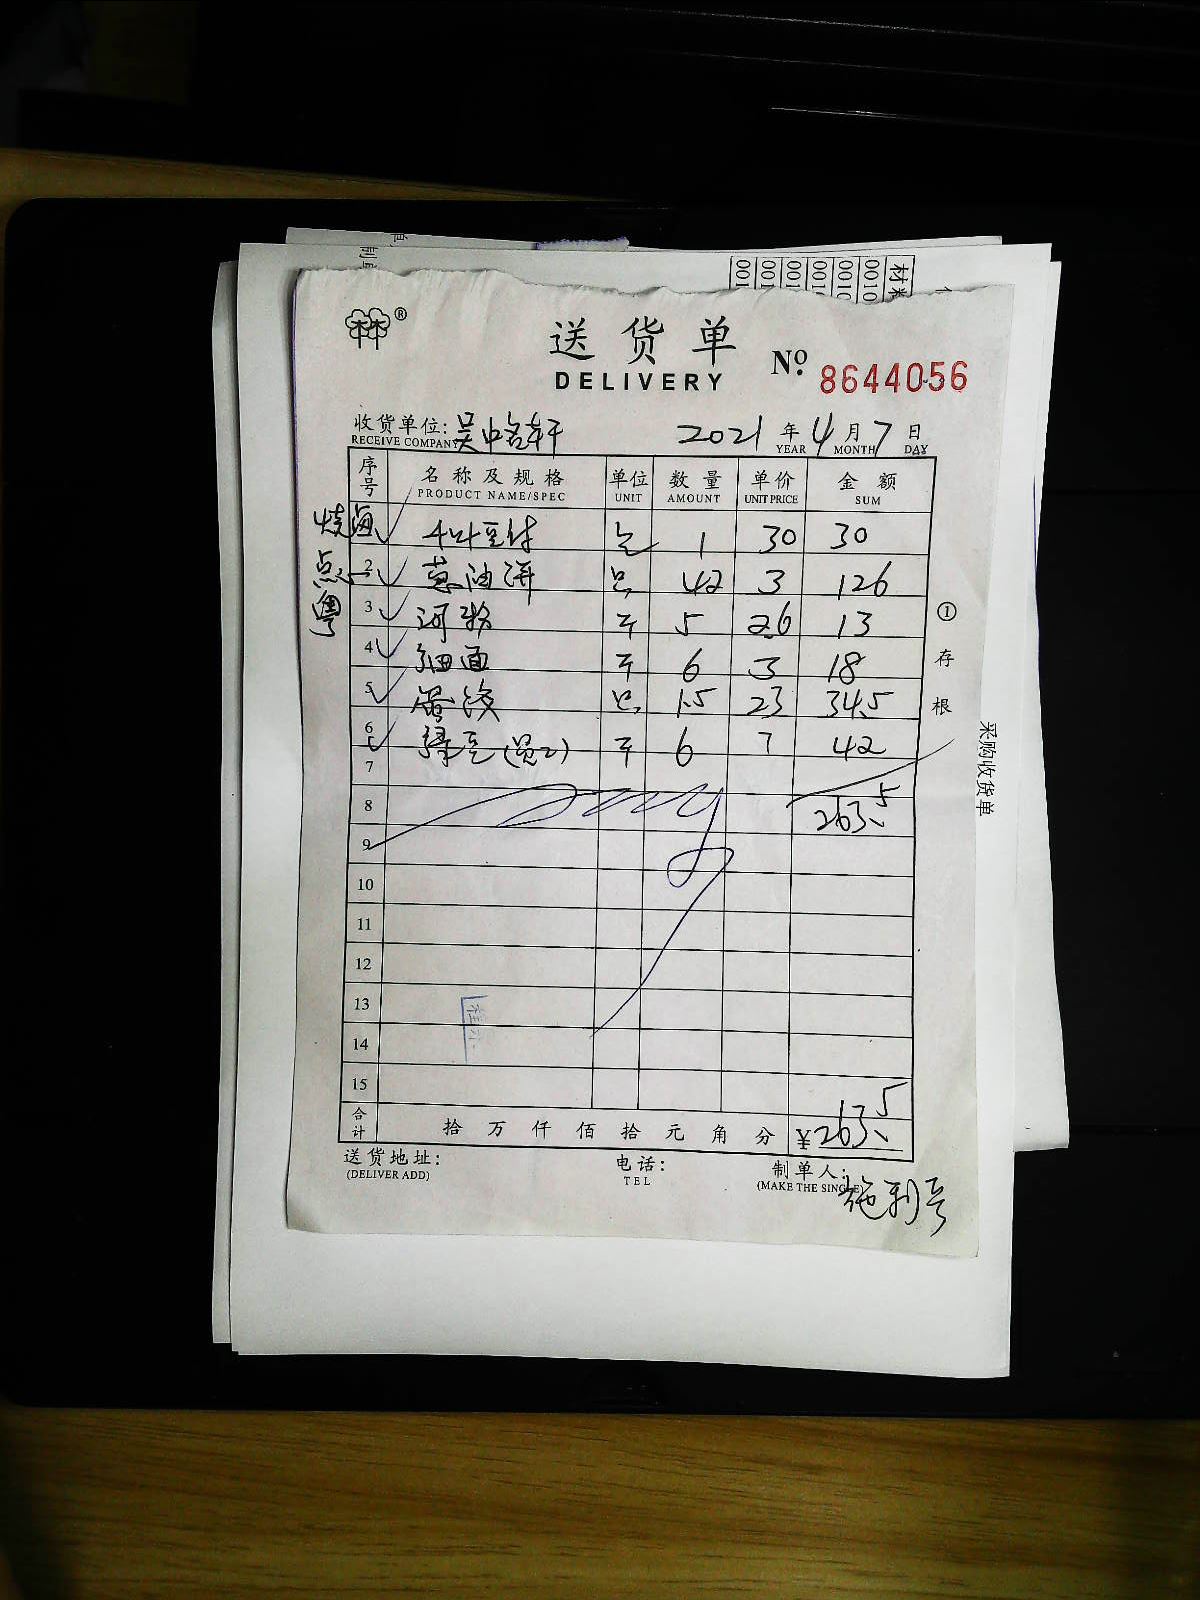 材料
0010
0010
001
001
001
001
送货单
DELIVERY
№ 8644056
收货单位: 吴中名轩
RECEIVE COMPANY
2021 年 4 月 7 日
YEAR MONTH DAY
序号 名称及规格 单位 数量 单价 金额
PRODUCT NAME/SPEC UNIT AMOUNT UNIT PRICE SUM
烧卤 豆付 1 30 30
点心 2 葱油饼 只 42 3 126
粤 3 河粉 斤 5 2.6 13
4 细面 斤 6 3 18
5 1.5 23 34.5
6 绿豆(员工) 斤 6 7 42
7
8 263.5
9
10
11
12
13
14
15
合计 拾万仟佰拾元角分 ¥263.5
送货地址: 电话: 制单人: 施利
(DELIVER ADD) TEL (MAKE THE SINGLE)
① 存根
采购收货单